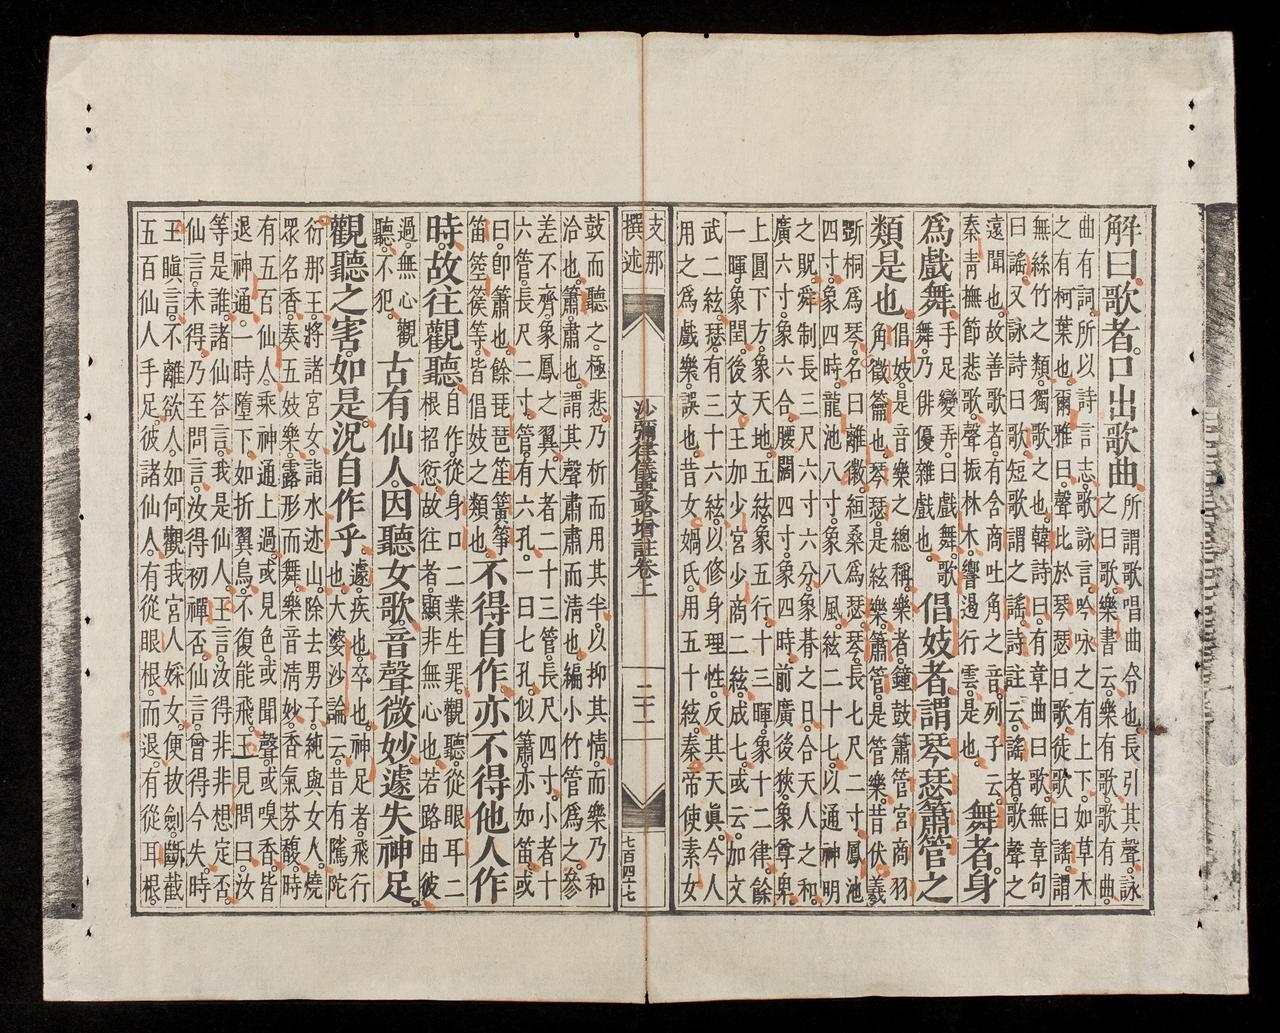 解曰。歌者。口出歌曲。
所謂歌唱曲令也。長引其聲。詠
之曰歌。樂書云。樂有歌。歌有曲。
曲有詞。所以詩言志。歌詠言。吟咏之有上下。如草木
之有柯葉也。爾雅曰。聲比於琴瑟曰歌。徒歌曰謠。謂
無絲竹之類。獨歌之也。韓詩曰。有章曲曰歌。無章句
曰謠。又詠詩曰歌。短歌謂之謠。詩註云。謠者。歌聲之
遠聞也。故善歌者。有含商吐角之音。列子云。
秦青撫節悲歌。聲振林木。響遏行雲。是也。
舞者。身
爲戲舞。
手足變弄。曰戲舞。歌
舞乃俳優雜戲也。
倡妓者。謂琴瑟簫管之
類是也。
倡妓。是音樂之總稱。樂者。鐘鼓簫管宮商羽
角徵籥也。琴瑟是絃樂。簫管是管樂。昔伏羲
斲桐爲琴。名曰離徽。絙桑爲瑟。琴長七尺二寸。鳳池
四寸。象四時。龍池八寸。象八風。絃二十七。以通神明
之貺。舜制長三尺六寸六分。象朞之日。合天人之和。
廣六寸。象六合。腰闊四寸。象四時。前廣後狹。象尊卑。
上圓下方。象天地。五絃。象五行。十三暉。象十二律。餘
一暉。象閏。後文王加少宮少商二絃。成七。或云。加文
武二絃。瑟。有三十六絃。以修身理性。反其天眞。今人
用之爲戲樂。誤也。昔女媧氏。用五十絃。秦帝使素女
支那
撰述
沙彌律儀要略增註卷上
二十二
七百四十七
鼓而聽之。極悲。乃析而用其半。以抑其情。而樂乃和
洽也。簫。肅也。謂其聲肅肅而清也。編小竹管爲之。參
差不齊。象鳳之翼。大者二十三管。長尺四寸。小者十
六管。長尺二寸。管。有六孔。一曰七孔。似簫。亦如笛。或
曰。卽簫也。餘琵琶笙簧箏
笛箜篌等。皆倡妓之類也。
不得自作。亦不得他人作
時。故往觀聽。
自作。從身口二業生罪。觀聽。從眼耳二
根招愆。故往者。顯非無心也。若路由彼
過。無心觀
聽。不犯。
古有仙人。因聽女歌。音聲微妙。遽失神足。
觀聽之害。如是。況自作乎。
遽。疾也。卒也。神足者。飛行
也。大婆沙論云。昔有隖陀
衍那王。將諸宮女。詣水迹山。除去男子。純與女人。燒
眾名香。奏五妓樂。露形而舞。樂音清妙。香氣芬馥。時
有五百仙人。乘神通上過。或見色。或聞聲。或嗅香。皆
退神通。一時墮下。如折翼鳥。不復能飛。王見問曰。汝
等是誰。諸仙答言。我是仙人。王言。汝得非非想定否。
仙言。未得。乃至問言。汝得初禪否。仙言。曾得今失。時
王瞋言。不離欲人。如何觀我宮人婇女。便故劍斷截
五百仙人手足。彼諸仙人。有從眼根而退。有從耳根。